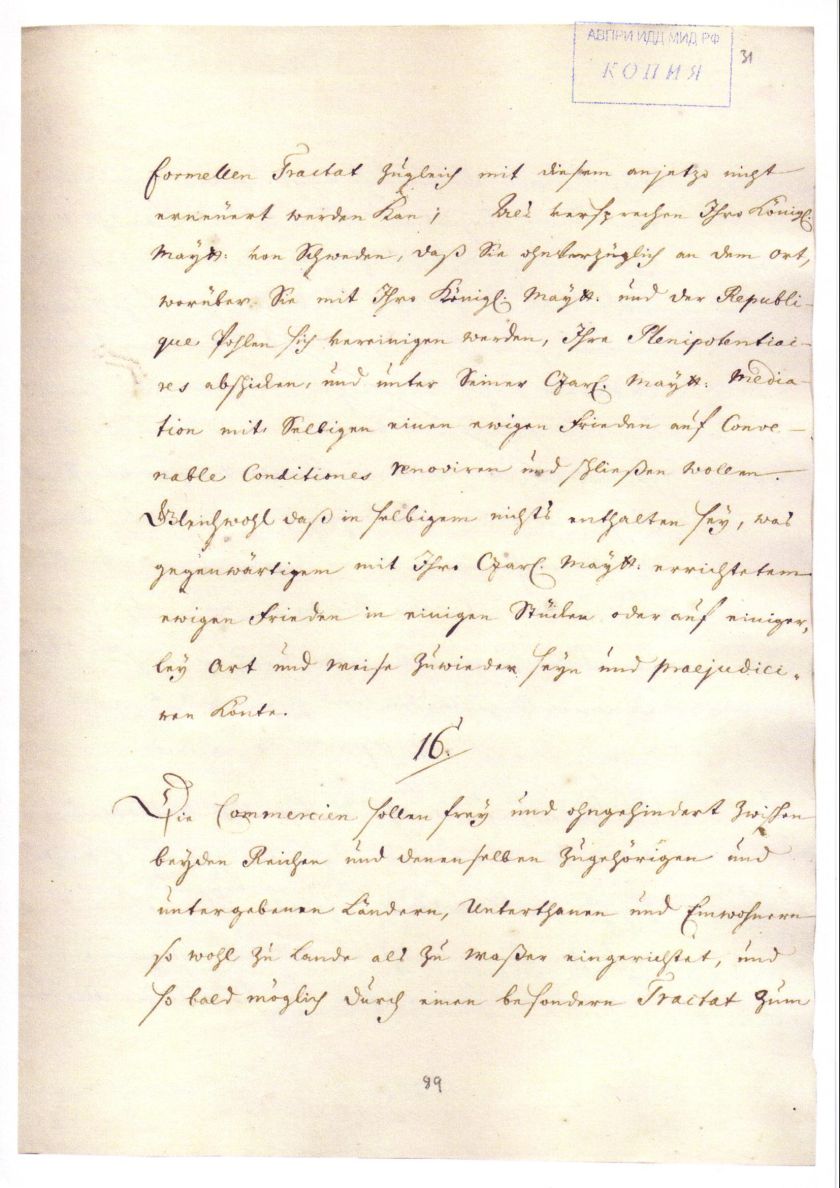 АВПРИ ИДД МИД РФ
КОПИЯ
31
formellen Tractat zugleich mit diesem anjetzo nicht
erneuert werden kan; versprechen Ihro Königl:
Maytt: von Schweden, daß Sie ohnverzüglich an dem ort,
worüber Sie mit Ihro Königl: Maytt: und der Republi-
que Pohlen sich vereinigen werden, Ihre Plenipotentiai-
res abschicken, und unter Seiner Czarl: Maytt: Media-
tion mit Selbigen einen ewigen Frieden auf Conve-
nable Conditiones renoviren und schließen wollen.
Gleichwohl daß in selbigem nichts enthalten sey, was
gegenwärtigem mit Ihro Czarl: Maytt: errichtetem
ewigen Frieden in einigen Stücken oder auf einiger-
ley Art und weise zuwieder seyn und praejudici-
ren könte.
16.
Die Commercien sollen frey und ohngehindert zwischen
beyden Reichen und denenselben zugehörigen und
untergebenen Ländern, Unterthanen und Einwohnern
so wohl zu Lande als zu waßer eingerichtet, und
so bald möglich durch einen besondern Tractat zum
89